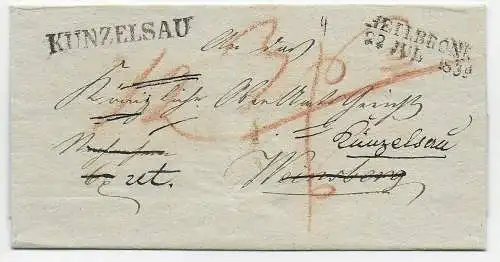 KUNZELSAU
HEILBRONN
22 JUL 1839
An das
Königliche Ober Amts Gericht
Künzelsau
Weinsberg
ret.